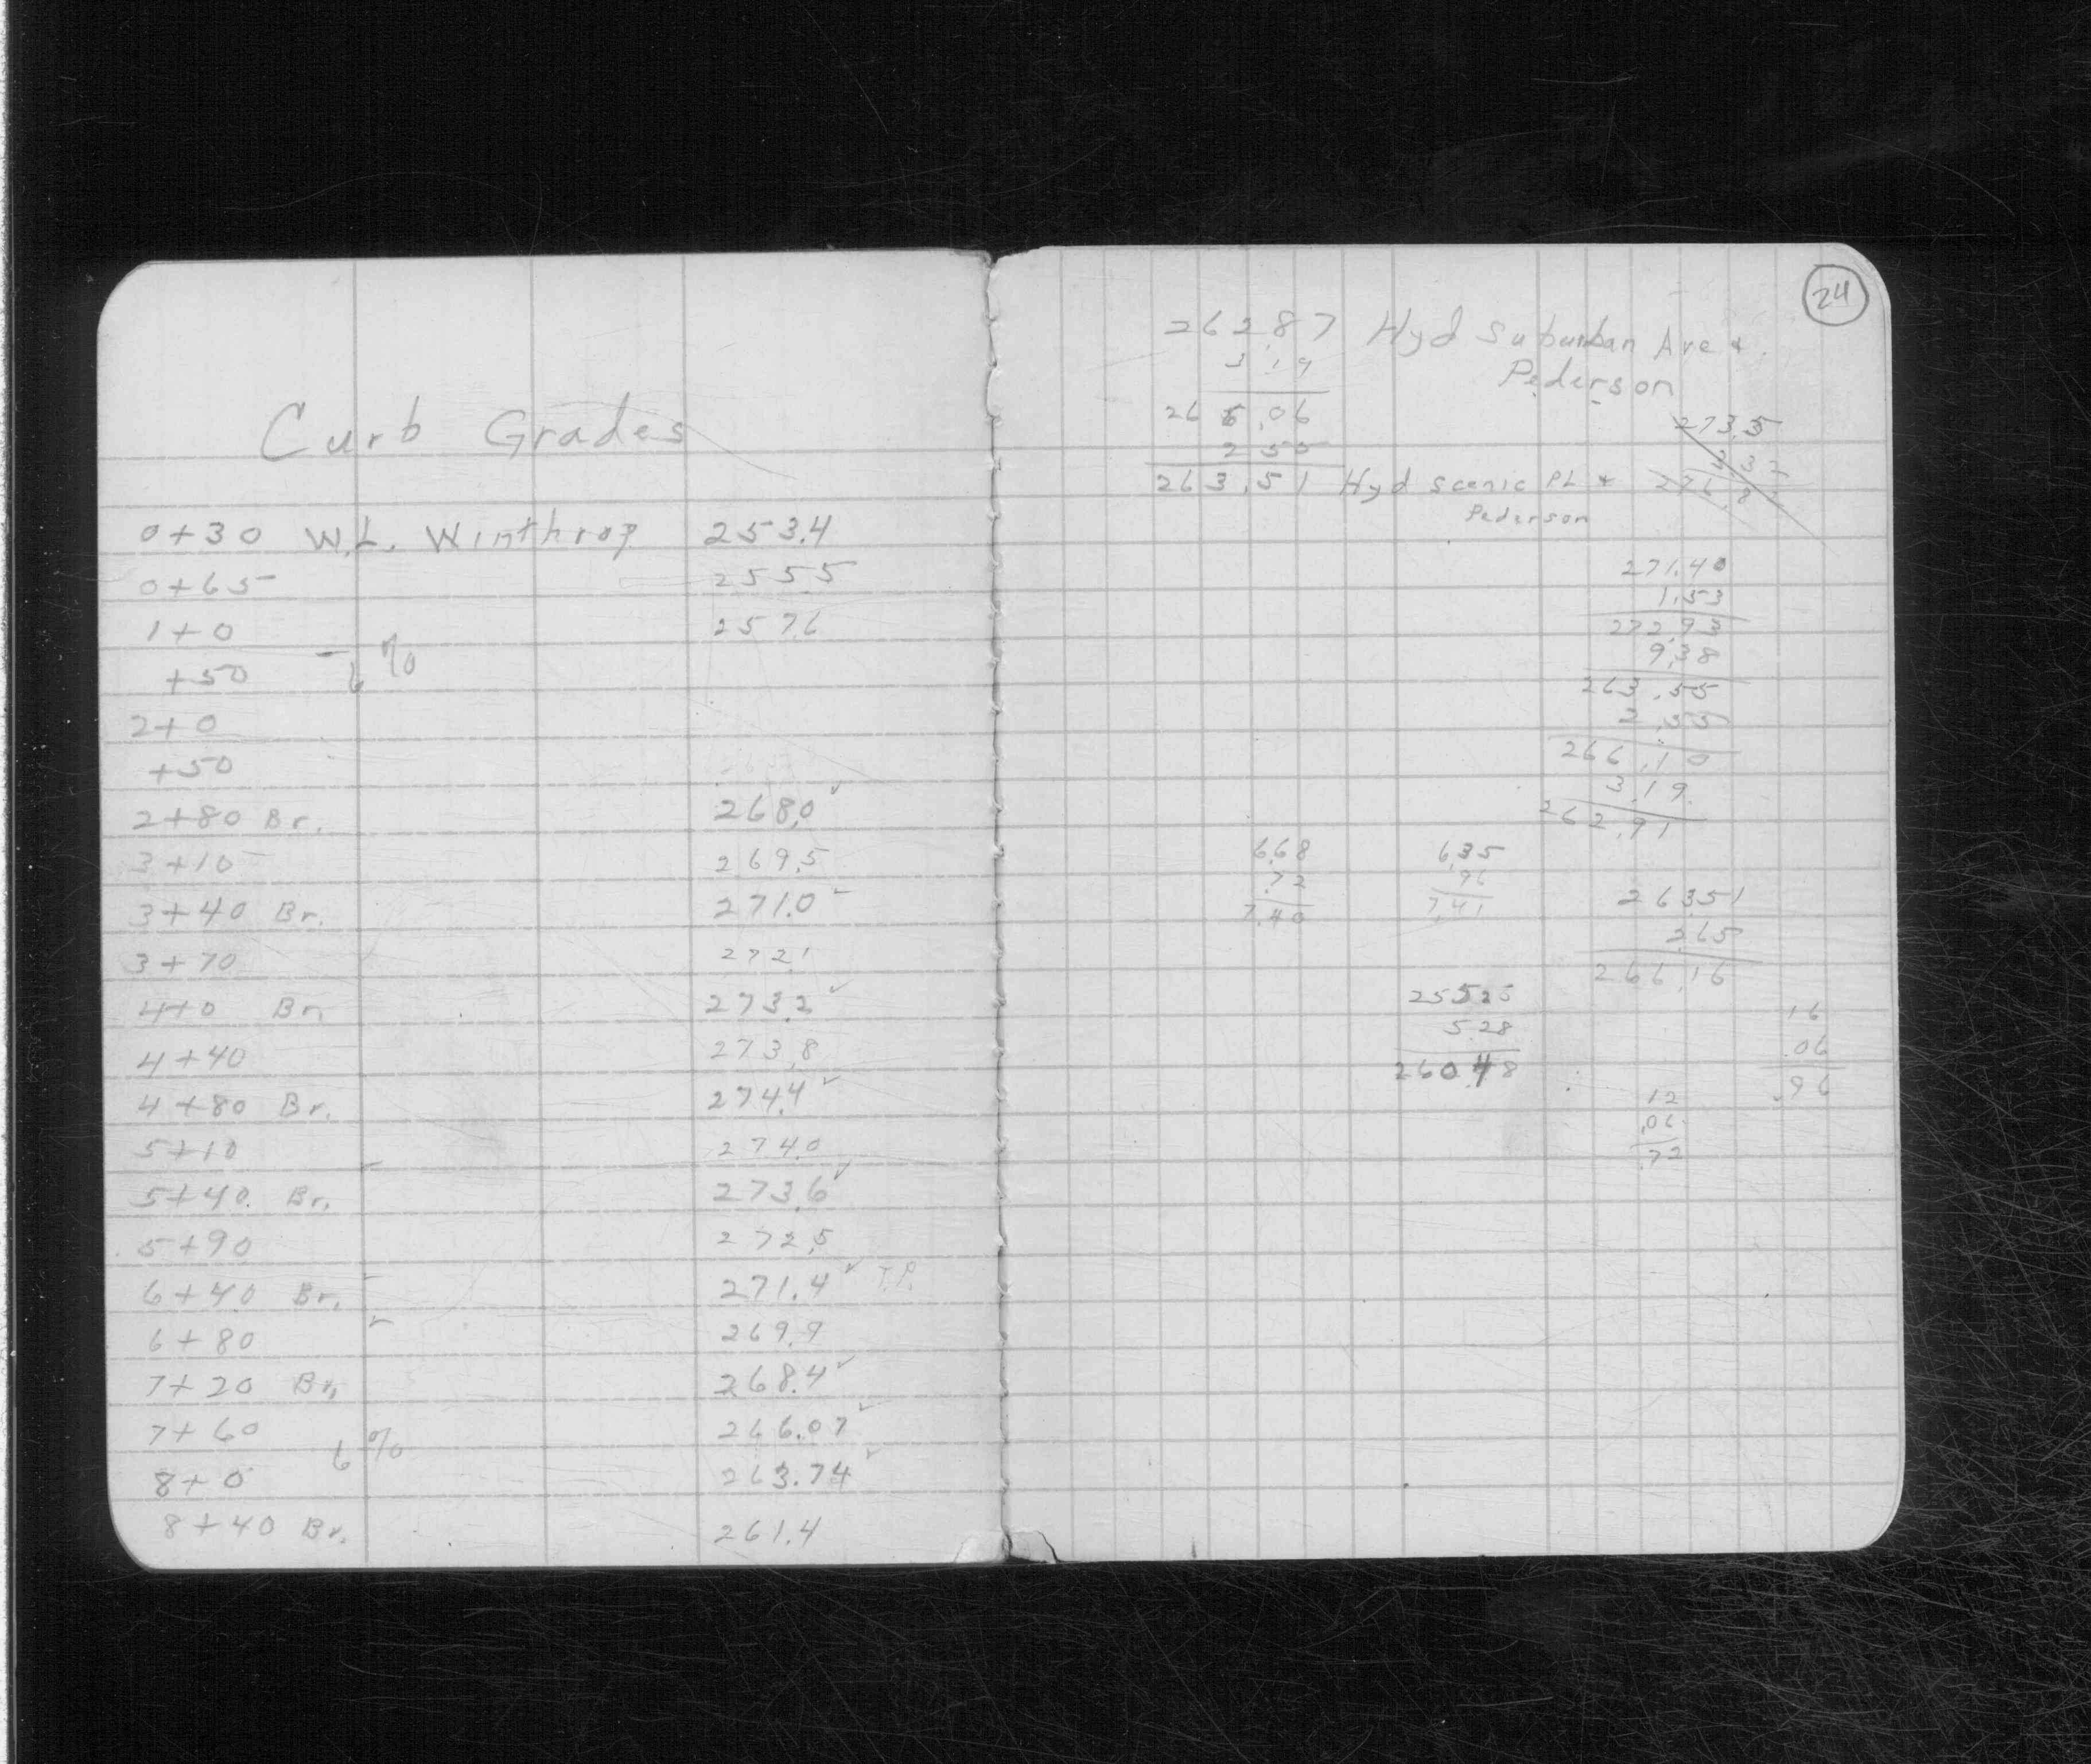 Curb Grades
0+30 W.L. Winthrop 253.4
0+65 255.5
1+0 257.6
+50 6%
2+0
+50
2+80 Br. 268.0 ✓
3+10 269.5
3+40 Br. 271.0 ✓
3+70 272.1
4+0 Br. 273.2 ✓
4+40 273.8
4+80 Br. 274.4 ✓
5+10 274.0
5+40 Br. 273.6 ✓
5+90 272.5
6+40 Br. 271.4 ✓ T.P.
6+80 269.9
7+20 Br. 268.4 ✓
7+60 266.07 ✓
6%
8+0 263.74 ✓
8+40 Br. 261.4
24
262.87 Hyd Suburban Ave &
Pederson
3.19
266.06
2.55
263.51 Hyd Scenic PL &
Pederson
273.5
271.40
1.53
272.93
9.38
263.55
2.55
266.10
3.19
262.91
6.68
.72
7.40
6.35
.96
7.41
263.51
2.65
266.16
255.25
5.28
260.48
16
.06
.96
12
.06
.72